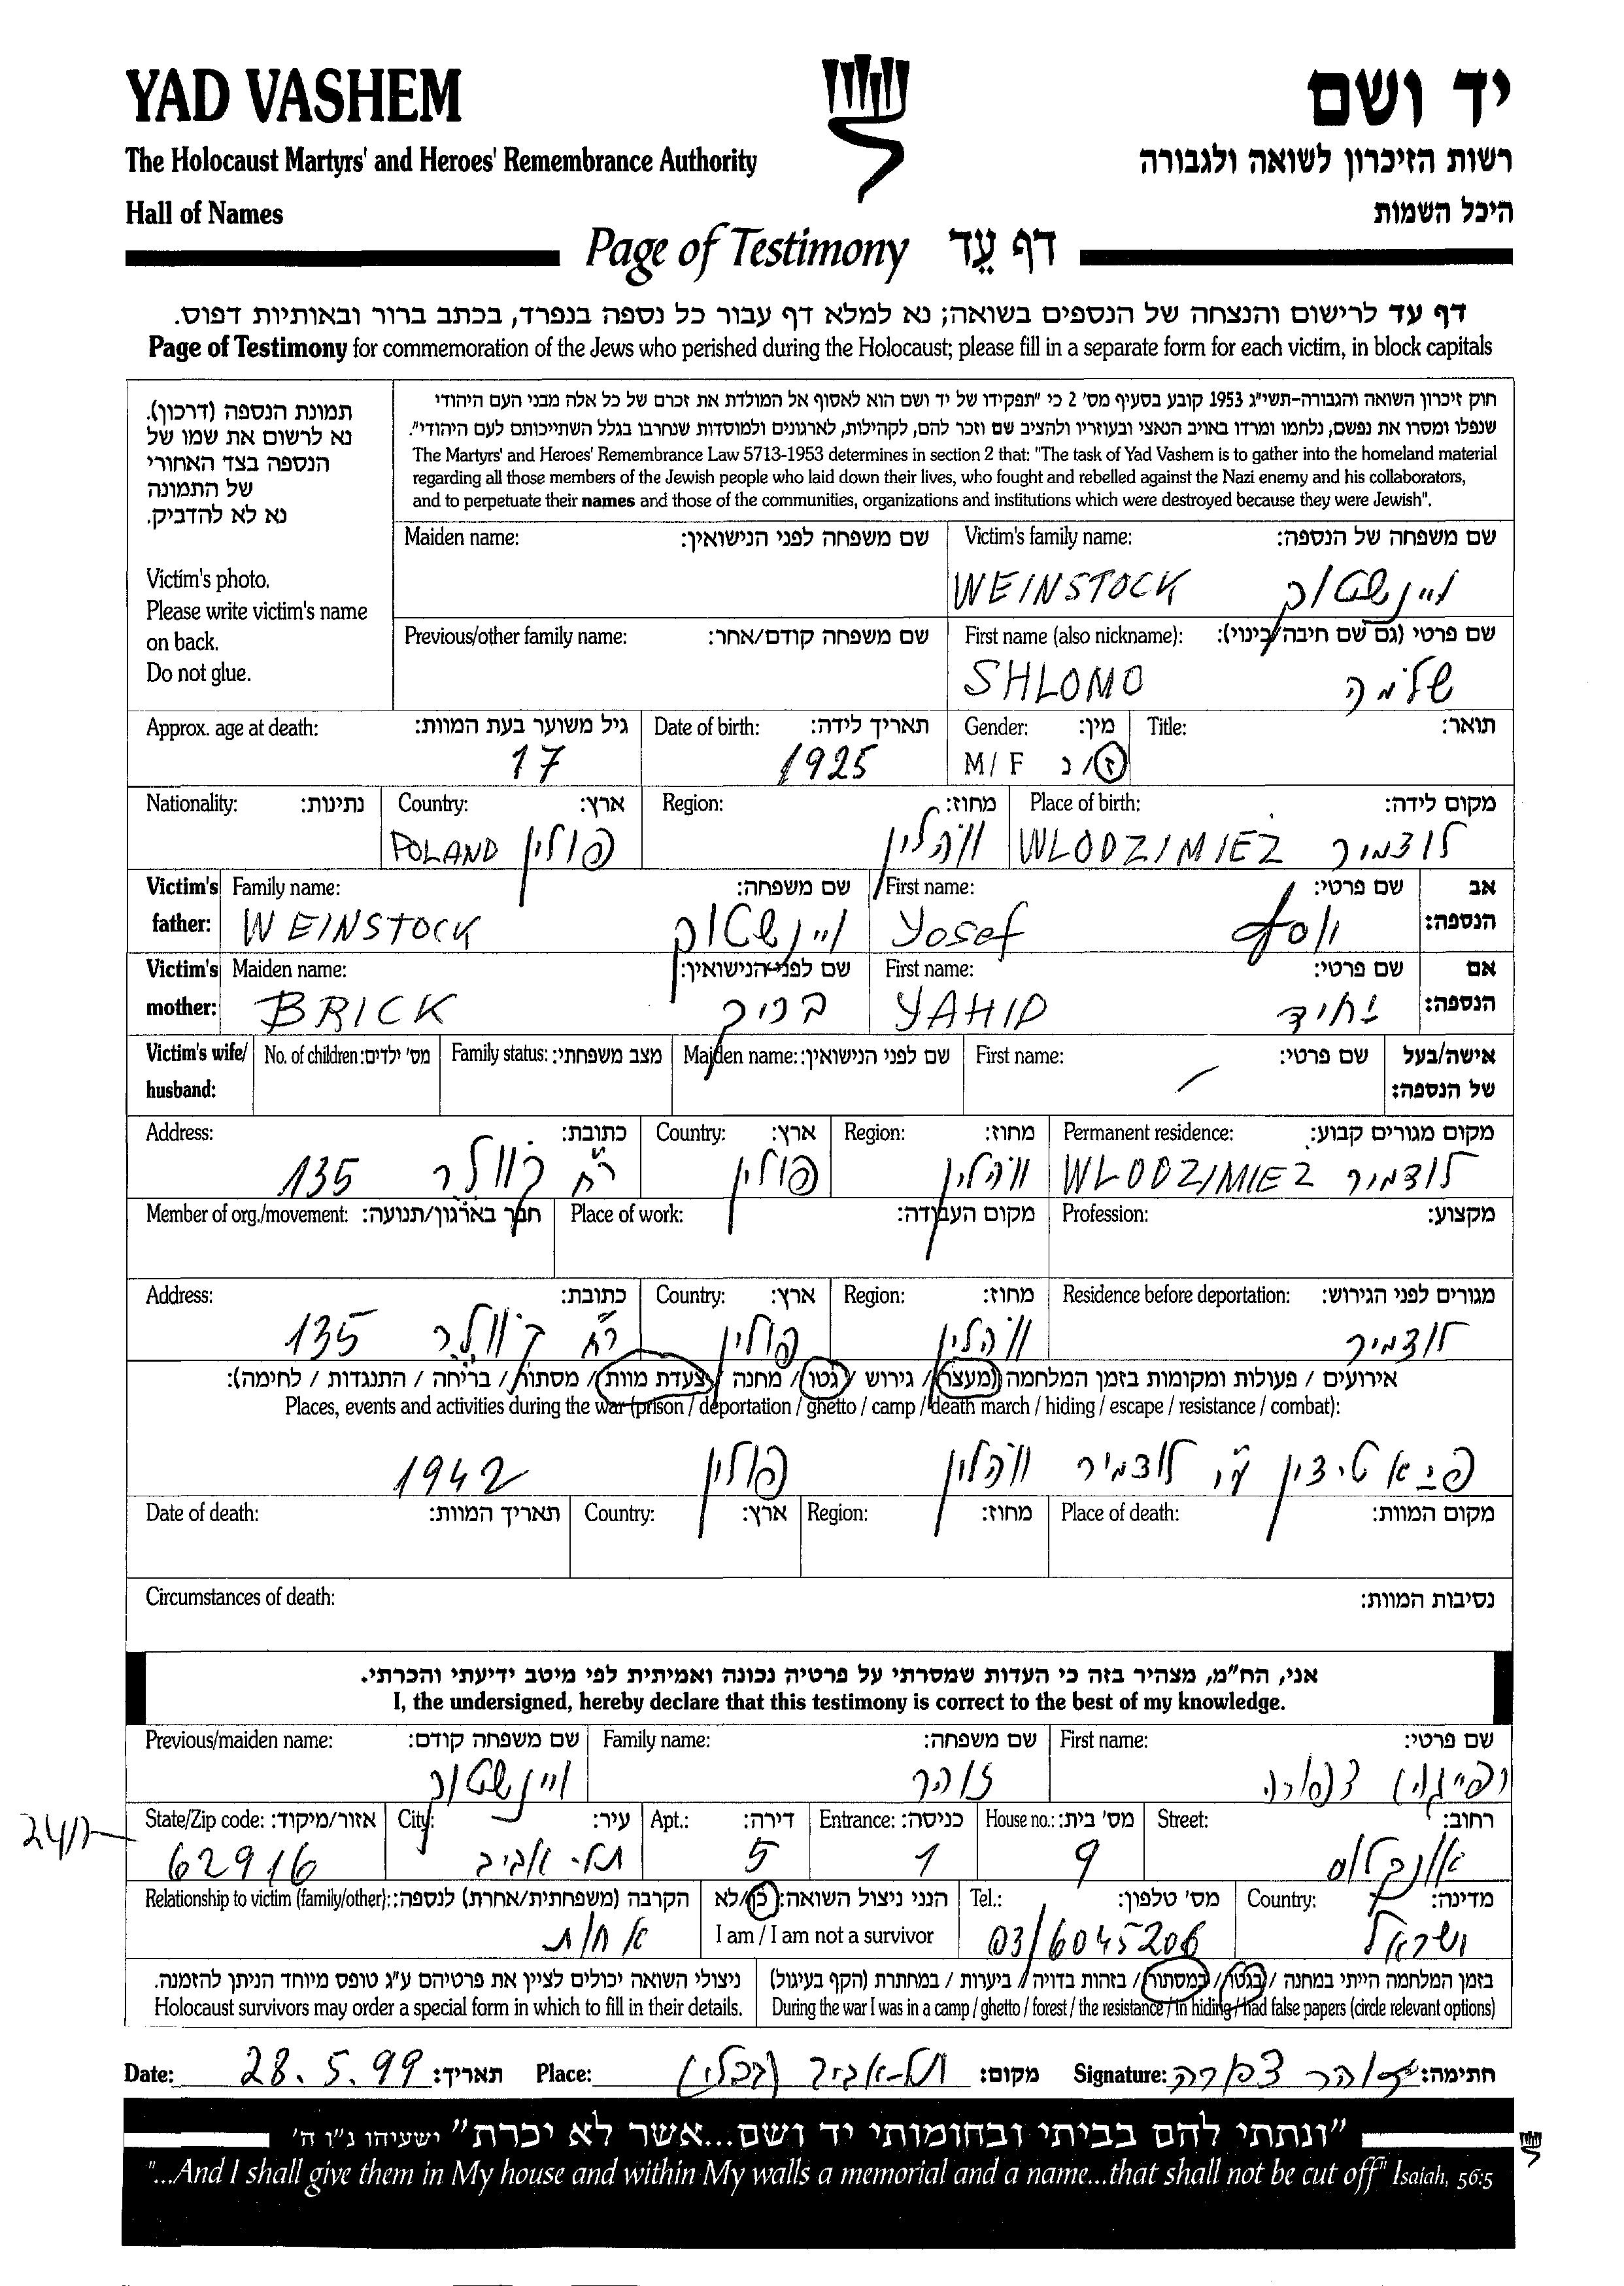 YAD VASHEM יד ושם
The Holocaust Martyrs' and Heroes' Remembrance Authority רשות הזיכרון לשואה ולגבורה
Hall of Names היכל השמות
Page of Testimony דף עֵד
דף עד לרישום והנצחה של הנספים בשואה; נא למלא דף עבור כל נספה בנפרד, בכתב ברור ובאותיות דפוס.
Page of Testimony for commemoration of the Jews who perished during the Holocaust; please fill in a separate form for each victim, in block capitals
תמונת הנספה (דרכון).
נא לרשום את שמו של
הנספה בצד האחורי
של התמונה
נא לא להדביק.
Victim's photo.
Please write victim's name
on back.
Do not glue.
חוק זיכרון השואה והגבורה-תשי"ג 1953 קובע בסעיף מס' 2 כי "תפקידו של יד ושם הוא לאסוף אל המולדת את זכרם של כל אלה מבני העם היהודי
שנפלו ומסרו את נפשם, נלחמו ומרדו באויב הנאצי ובעוזריו ולהציב שם וזכר להם, לקהילות, לארגונים ולמוסדות שנחרבו בגלל השתייכותם לעם היהודי".
The Martyrs' and Heroes' Remembrance Law 5713-1953 determines in section 2 that: "The task of Yad Vashem is to gather into the homeland material
regarding all those members of the Jewish people who laid down their lives, who fought and rebelled against the Nazi enemy and his collaborators,
and to perpetuate their names and those of the communities, organizations and institutions which were destroyed because they were Jewish".
Maiden name: שם משפחה לפני הנישואין: Victim's family name: שם משפחה של הנספה:
WEINSTOCK ויינשטוק
Previous/other family name: שם משפחה קודם/אחר: First name (also nickname): שם פרטי (גם שם חיבה/כינוי):
SHLOMO שלמה
Approx. age at death: גיל משוער בעת המוות: Date of birth: תאריך לידה: Gender: מין: Title: תואר:
17 1925 M/ F ז/נ
Nationality: נתינות: Country: ארץ: Region: מחוז: Place of birth: מקום לידה:
POLAND פולין ווהלין WLODZIMIEZ לודצמיר
Victim's father: Family name: שם משפחה: First name: שם פרטי: אב הנספה:
WEINSTOCK ויינשטוק Yosef יוסף
Victim's mother: Maiden name: שם לפני הנישואין: First name: שם פרטי: אם הנספה:
BRICK בריק YAHID יחיד
Victim's wife/ husband: No. of children: מס' ילדים: Family status: מצב משפחתי: Maiden name: שם לפני הנישואין: First name: שם פרטי: אישה/בעל של הנספה:
Address: כתובת: Country: ארץ: Region: מחוז: Permanent residence: מקום מגורים קבוע:
135 רח' פולין ווהלין WLODZIMIEZ לודצמיר
Member of org./movement: חבר בארגון/תנועה: Place of work: מקום העבודה: Profession: מקצוע:
Address: כתובת: Country: ארץ: Region: מחוז: Residence before deportation: מגורים לפני הגירוש:
135 רח' פולין ווהלין לודצמיר
אירועים / פעולות ומקומות בזמן המלחמה (מעצר / גירוש / גטו / מחנה / צעדת מוות / מסתור / בריחה / התנגדות / לחימה):
Places, events and activities during the war (prison / deportation / ghetto / camp / death march / hiding / escape / resistance / combat):
1942 פולין ווהלין לודצמיר
Date of death: תאריך המוות: Country: ארץ: Region: מחוז: Place of death: מקום המוות:
Circumstances of death: נסיבות המוות:
אני, הח"מ, מצהיר בזה כי העדות שמסרתי על פרטיה נכונה ואמיתית לפי מיטב ידיעתי והכרתי.
I, the undersigned, hereby declare that this testimony is correct to the best of my knowledge.
Previous/maiden name: שם משפחה קודם: Family name: שם משפחה: First name: שם פרטי:
ויינשטוק זוהר צפורה
State/Zip code: אזור/מיקוד: City: עיר: Apt.: דירה: Entrance: כניסה: House no.: מס' בית: Street: רחוב:
62916 תל-אביב 5 1 9 אונקלוס
Relationship to victim (family/other): הקרבה (משפחתית/אחרת) לנספה: הנני ניצול השואה: כן/לא Tel.: מס' טלפון: Country: מדינה:
אחות I am / I am not a survivor 03/6045206 ישראל
ניצולי השואה יכולים לציין את פרטיהם ע"ג טופס מיוחד הניתן להזמנה. בזמן המלחמה הייתי במחנה / בגטו / במסתור / בזהות בדויה / ביערות / במחתרת (הקף בעיגול)
Holocaust survivors may order a special form in which to fill in their details. During the war I was in a camp / ghetto / forest / the resistance / in hiding / had false papers (circle relevant options)
Date: 28.5.99 תאריך: Place: תל-אביב מקום: Signature: זוהר צפורה חתימה:
"ונתתי להם בביתי ובחומותי יד ושם...אשר לא יכרת" ישעיהו נ"ו ה'
"...And I shall give them in My house and within My walls a memorial and a name...that shall not be cut off" Isaiah, 56:5